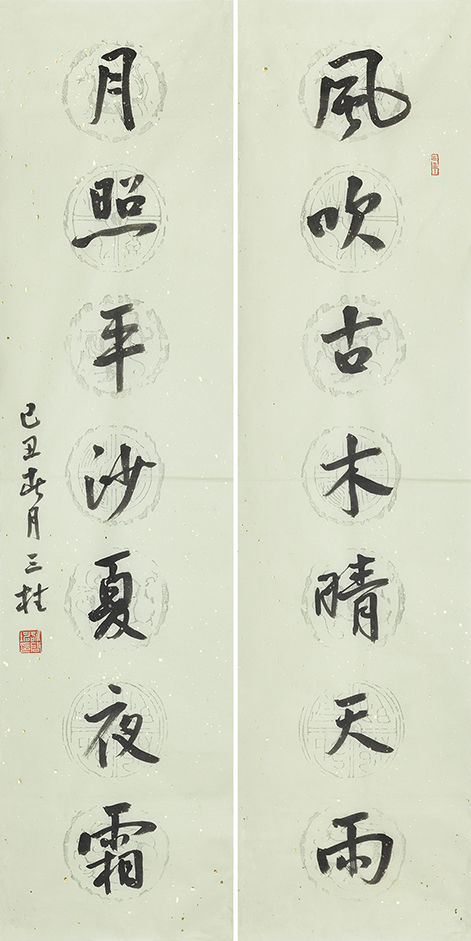 風吹古木晴天雨
月照平沙夏夜霜
己丑春月三柱